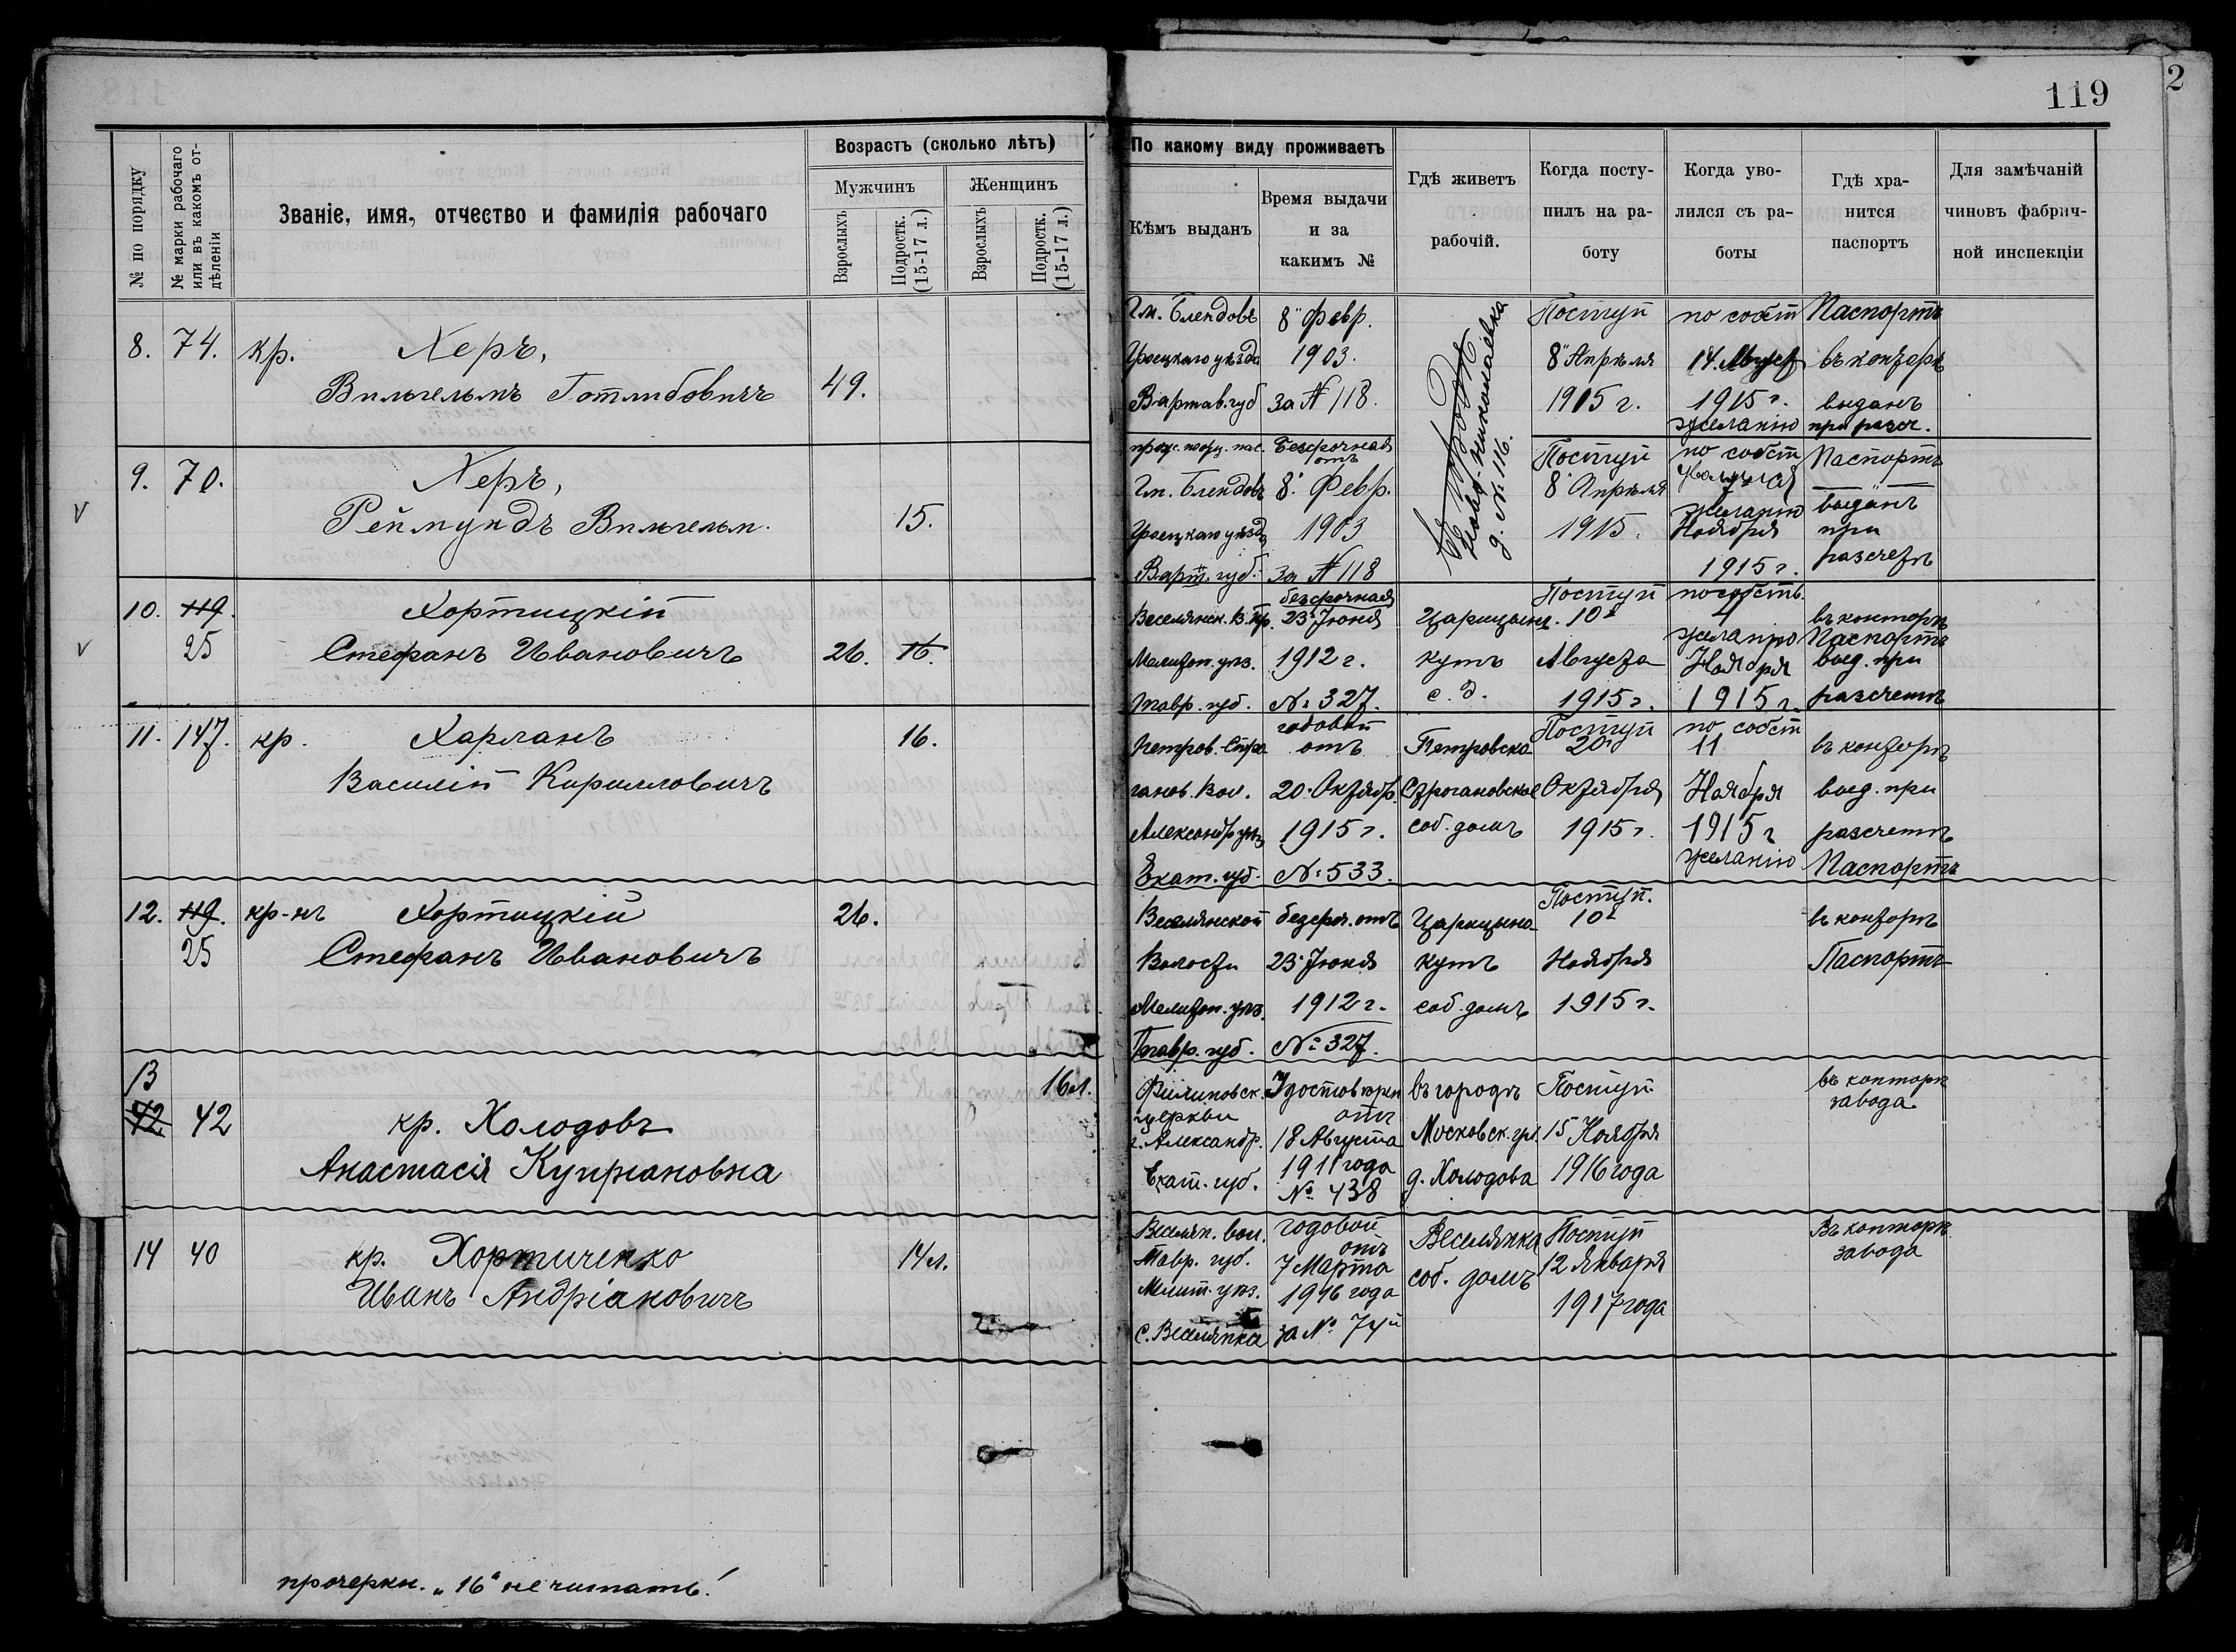 119
2
№ по порядку
№ марки рабочаго или въ какомъ отдѣленіи
Званіе, имя, отчество и фамилія рабочаго
Возрастъ (сколько лѣтъ)
Мужчинъ
Женщинъ
Взрослыхъ
Подростк. (15-17 л.)
Взрослыхъ
Подростк. (15-17 л.)
По какому виду проживаетъ
Кѣмъ выданъ
Время выдачи
и за
какимъ №
Гдѣ живетъ
рабочій.
Когда посту-
пилъ на ра-
боту
Когда уво-
лился съ ра-
боты
Гдѣ хра-
нится
паспортъ
Для замѣчаній
чиновъ фабрич-
ной инспекціи
8. 74. кр. Херъ,
Вильгельмъ Готлибовичъ
49.
Гм. Блендовъ
Гроецкаго уѣзда
Варшав. губ
8 февр.
1903.
за № 118.
д. № 116.
Поступ
8 Апрѣля
1915 г.
по собст
14. Август
1915 г.
желанію
Паспортъ
въ конторѣ
выданъ
при разсч.
9. 70. Херъ,
Реймундъ Вильгельм.
15.
Гм. Блендовъ
Гроецкаго уѣзда
Варш. губ.
Безсрочная
отъ
8. Февр.
1903
за № 118
Поступ
8 Апрѣля
1915.
по собст
желанію
Ноября
1915 г.
Паспортъ
выданъ
при
разсчетѣ
10. 119. 25
Хортицкій
Стефанъ Ивановичъ
26. 16.
Веселянск. В. Пр.
Мелитоп. уѣз.
Тавр. губ.
безсрочная
23 Іюня
1912 г.
№ 327.
Царицынъ.
кутъ
с. д.
Поступ
10
Августа
1915 г.
по собств.
желанію
Ноября
1915 г.
въ конторѣ
Паспортъ
выд. при
разсчетѣ
11. 147. кр. Харланъ
Василій Кирилловичъ
16.
Петров.-Стро
ганов. Вол.
Александр. уѣз
Екат. губ.
годовой
отъ
20 Октябр.
1915 г.
№ 533.
Петровско
Строгановское
соб. домъ
Поступ
20
Октября
1915 г.
по собст
11
Ноября
1915 г
желанію
въ конторѣ
выд. при
разсчетѣ
Паспортъ
12. 119. 25
кр-нъ Хортицкій
Стефанъ Ивановичъ
26.
Веселянской
Волости
Мелитоп. уѣз.
Тавр. губ.
безсроч. отъ
23 Іюня
1912 г.
№ 327.
Царицыно-
кутъ
соб. домъ
Поступ.
10
Ноября
1915 г.
въ конторѣ
Паспортъ
13
42 42
кр. Холодовъ
Анастасія Купріановна
16 л.
Филиповск.
церкви
г. Александр.
Екат. губ.
Удостоверен
отъ
18 Августа
1911 года
№ 438
въ городѣ
Московск. ул.
д. Холодова
Поступ
15 Ноября
1916 года
въ конторѣ
завода
14 40
кр. Хортиченко
Иванъ Андріановичъ
14 л.
Веселян. вол.
Тавр. губ.
Мелит. уѣз.
с. Веселянка
годовой
отъ
7 Марта
1916 года
за № 74
Веселянка
соб. домъ
Поступ
12 Января
1917 года
Въ конторѣ
завода
прочеркн. „16“ не читать!